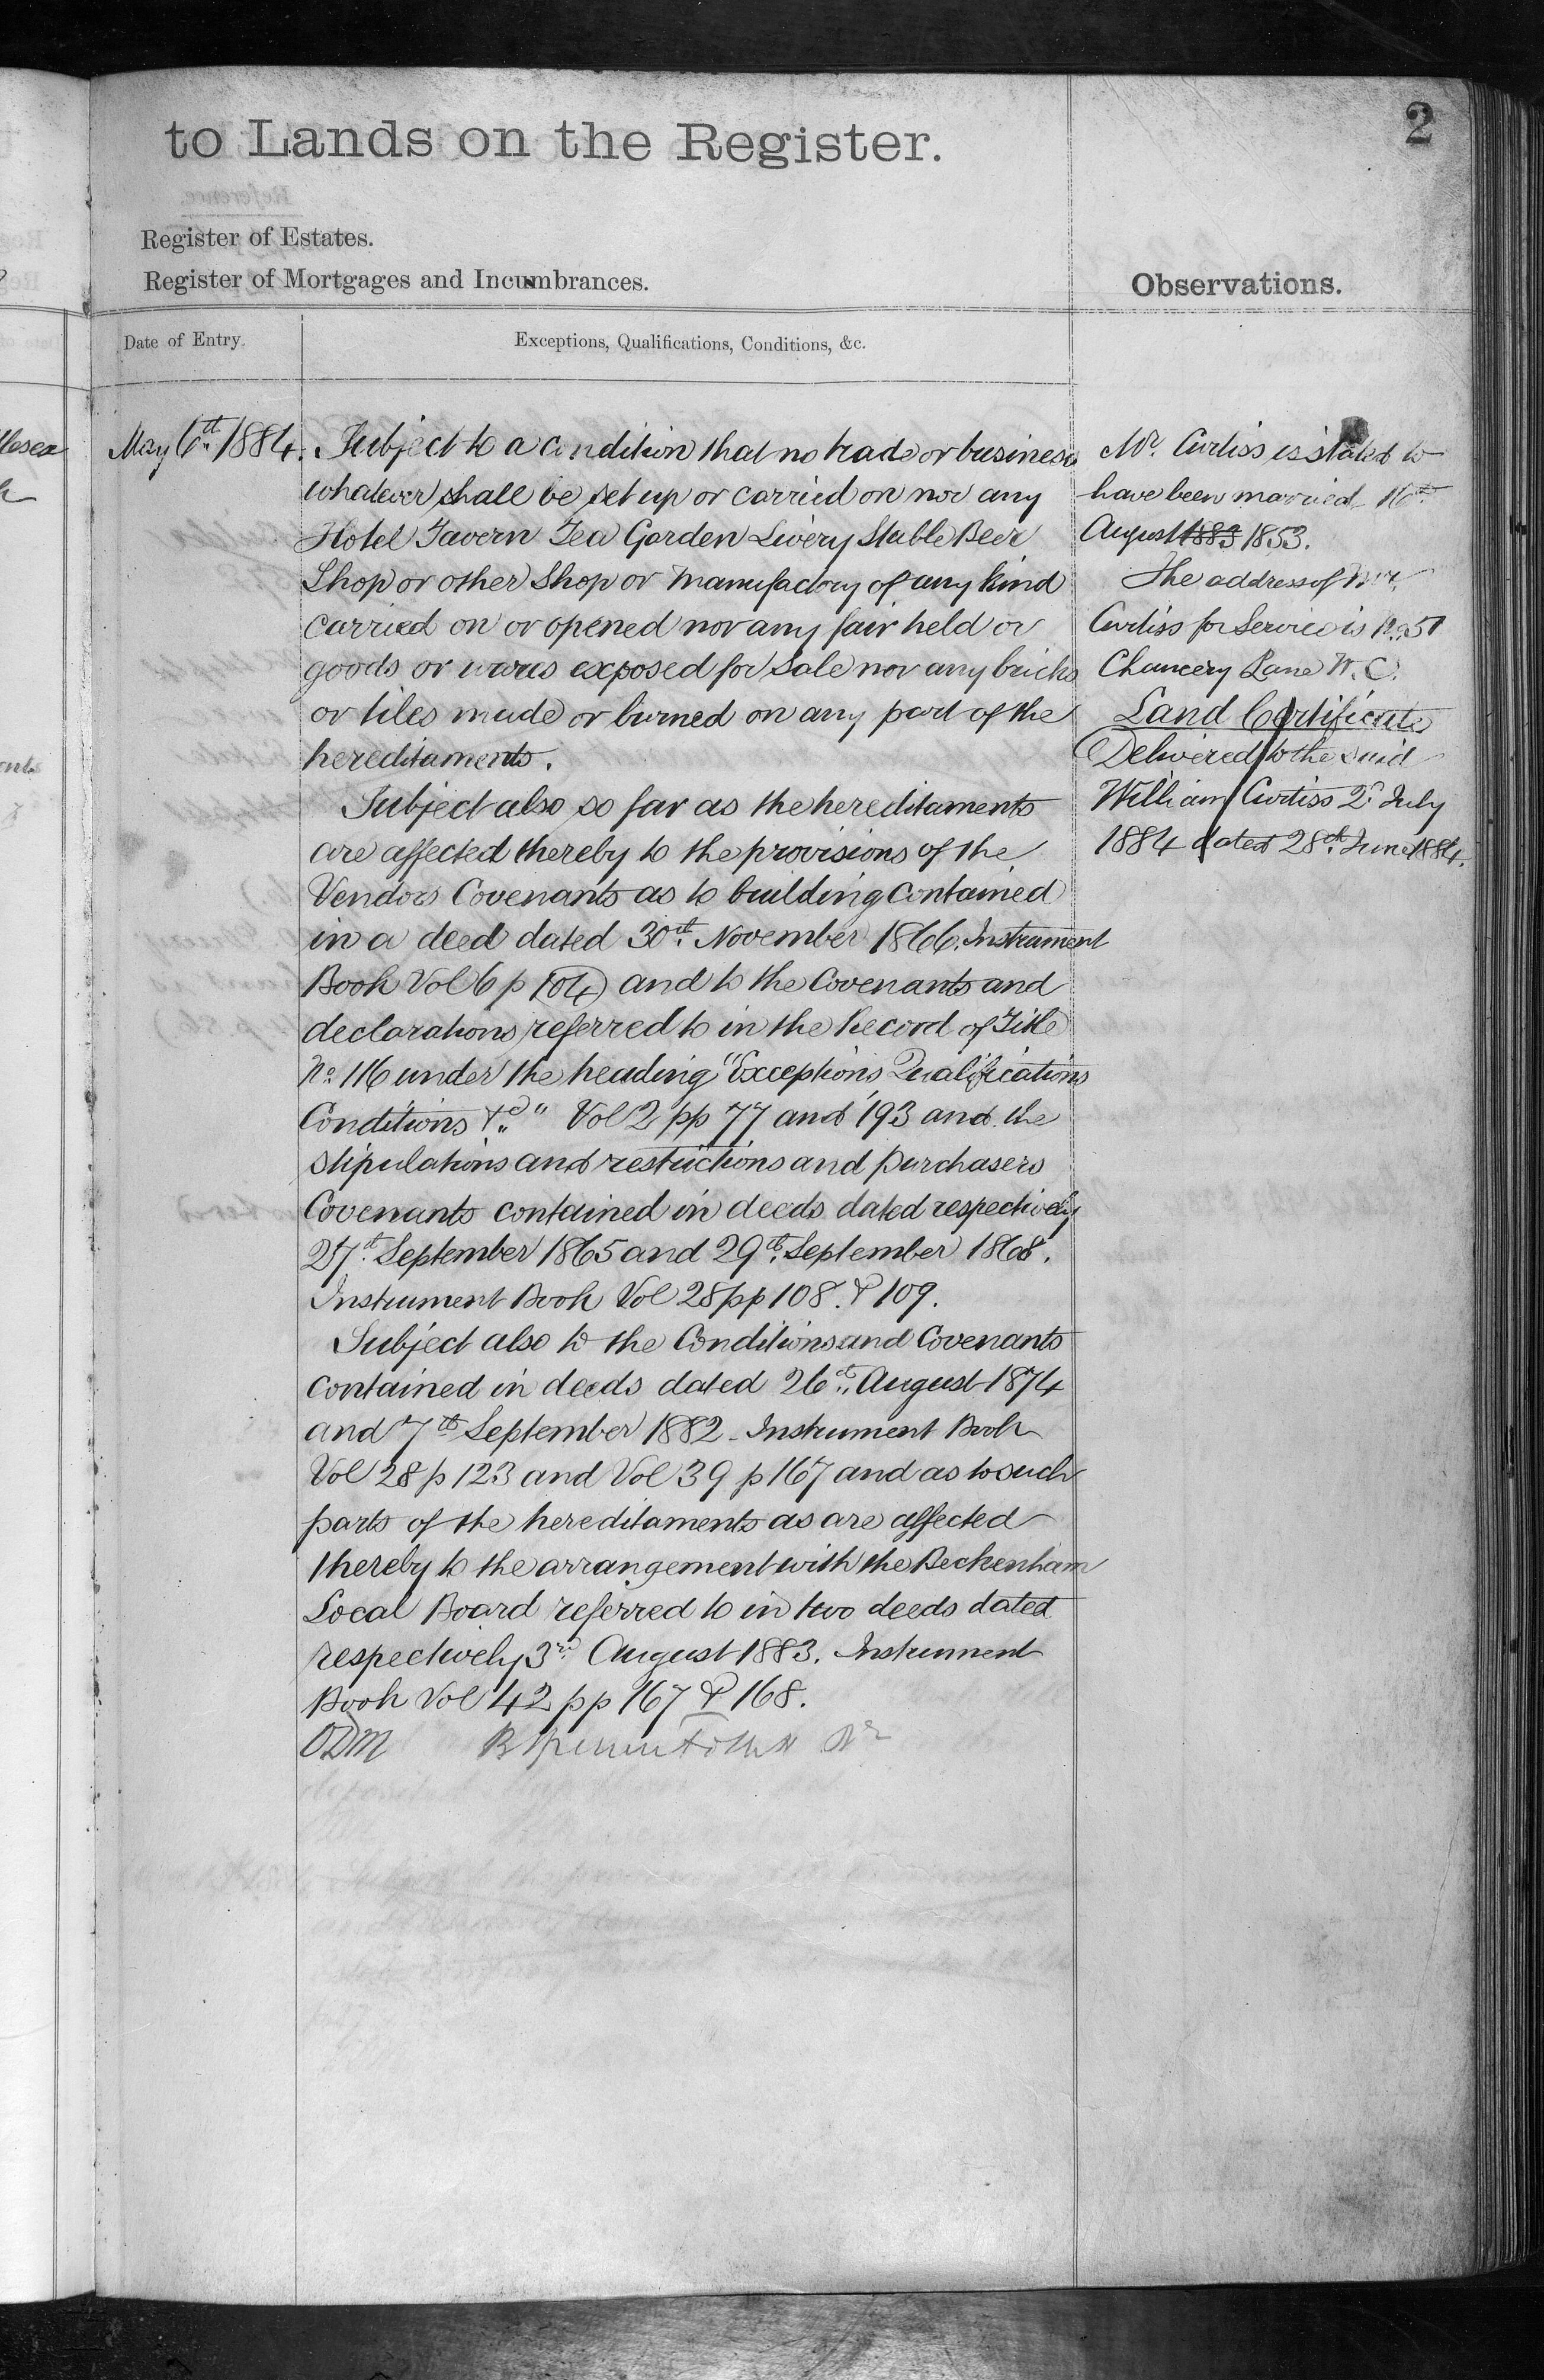 2
to Lands on the Register.
Register of Estates.
Register of Mortgages and Incumbrances.
Observations.
Date of Entry.
Exceptions, Qualifications, Conditions, &c.
May 6th 1884.
Subject to a condition that no trade or business
whatever shall be set up or carried on nor any
Hotel Tavern Tea Garden Livery Stable Beer
Shop or other Shop or Manufactory of any kind
carried on or opened nor any fair held or
goods or wares exposed for Sale nor any bricks
or tiles made or burned on any part of the
hereditaments.
Subject also so far as the hereditaments
are affected thereby to the provisions of the
Vendors Covenants as to building contained
in a deed dated 30th November 1866. Instrument
Book Vol 6 p 104) and to the Covenants and
declarations referred to in the Record of Title
No. 116 under the heading "Exceptions Qualifications
Conditions &c" Vol 2 pp 77 and 193 and the
stipulations and restrictions and purchasers
Covenants contained in deeds dated respectively
27th September 1865 and 29th September 1868.
Instrument Book Vol 28 pp 108. & 109.
Subject also to the Conditions and Covenants
contained in deeds dated 26th August 1874
and 7th September 1882 - Instrument Book
Vol 28 p 123 and Vol 39 p 167 and as to such
parts of the hereditaments as are affected
thereby to the arrangement with the Beckenham
Local Board referred to in two deeds dated
respectively 3rd August 1883. Instrument
Book Vol 42 pp 167 & 168.
ODM
Mr. Curtiss is stated to
have been married 16th
August 1883 1853.
The address of Mr.
Curtiss for Service is No 51
Chancery Lane W.C.
Land Certificate
Delivered to the said
William Curtiss 2d July
1884 dated 28th June 1884.